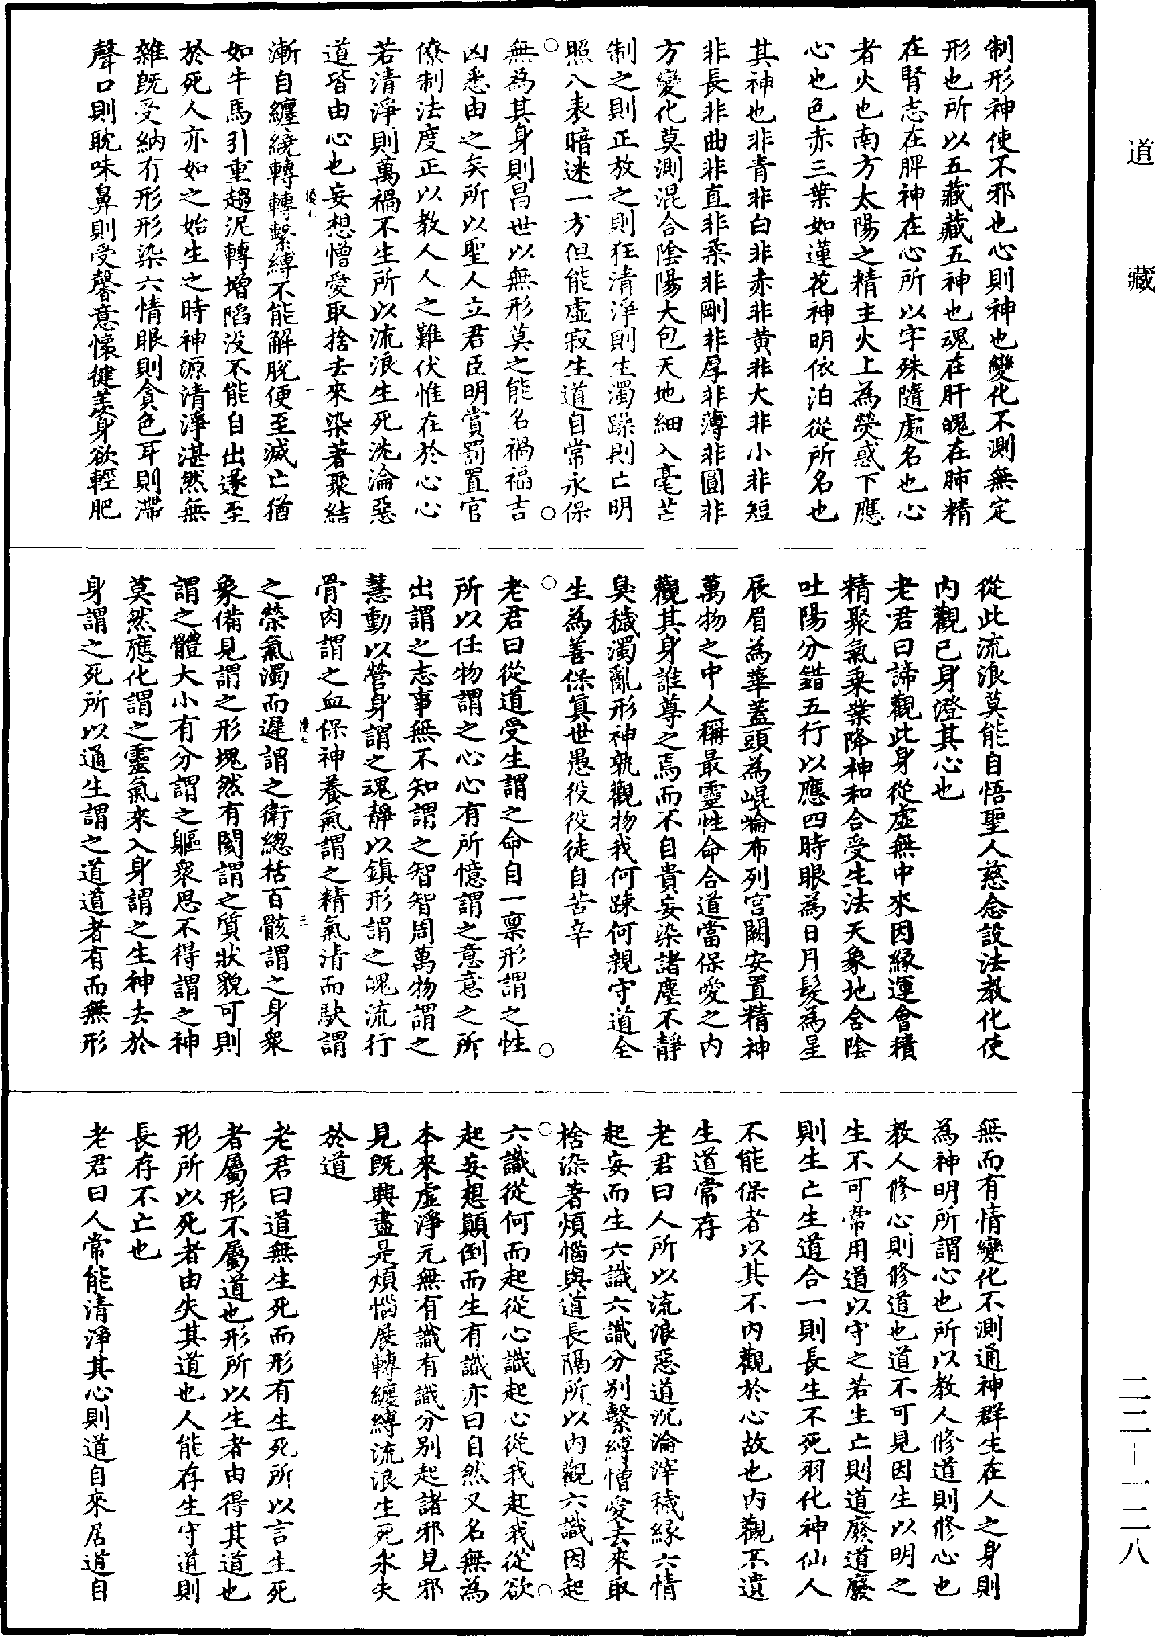 道藏
二二—一二八
制形神使不邪也心則神也變化不測無定
形也所以五藏藏五神也魂在肝魄在肺精
在腎志在脾神在心所以字殊隨處名也心
者火也南方太陽之精主火上為熒惑下應
心也色赤三葉如蓮花神明依泊從所名也
其神也非青非白非赤非黃非大非小非短
非長非曲非直非柔非剛非厚非薄非圓非
方變化莫測混合陰陽大包天地細入毫芒
制之則正放之則狂清淨則生濁躁則亡明
照八表暗迷一方但能虛寂生道自常永保
無為其身則昌世以無形莫之能名禍福吉
凶悉由之矣所以聖人立君臣明賞罰置官
僚制法度正以教人人之難伏惟在於心心
若清淨則萬禍不生所以流浪生死沈淪惡
道皆由心也妄想憎愛取捨去來染著聚結
漸自纏繞轉轉繫縛不能解脫便至滅亡猶
如牛馬引重趨泥轉增陷没不能自出遂至
於死人亦如之始生之時神源清淨湛然無
雜既受納有形形染六情眼則貪色耳則滯
聲口則耽味鼻則受馨意懷健羨身欲輕肥
從此流浪莫能自悟聖人慈念設法教化使
內觀己身澄其心也
老君曰諦觀此身從虛無中來因緣運會積
精聚氣乘業降神和合受生法天象地含陰
吐陽分錯五行以應四時眼為日月髮為星
辰眉為華蓋頭為崐崙布列宮闕安置精神
萬物之中人稱最靈性命合道當保愛之內
觀其身誰尊之焉而不自貴妄染諸塵不靜
臭穢濁亂形神孰觀物我何踈何親守道全
生為善保真世愚役役徒自苦辛
老君曰從道受生謂之命自一稟形謂之性
所以任物謂之心心有所憶謂之意意之所
出謂之志事無不知謂之智智周萬物謂之
慧動以營身謂之魂靜以鎮形謂之魄流行
骨肉謂之血保神養氣謂之精氣清而駃謂
之榮氣濁而遲謂之衛總括百骸謂之身衆
象備見謂之形塊然有閡謂之質狀貌可則
謂之體大小有分謂之軀衆思不得謂之神
莫然應化謂之靈氣來入身謂之生神去於
身謂之死所以通生謂之道道者有而無形
無而有情變化不測通神群生在人之身則
為神明所謂心也所以教人修道則修心也
教人修心則修道也道不可見因生以明之
生不可常用道以守之若生亡則道廢道廢
則生亡生道合一則長生不死羽化神仙人
不能保者以其不內觀於心故也內觀不遺
生道常存
老君曰人所以流浪惡道沉淪滓穢緣六情
起妄而生六識六識分別繫縛憎愛去來取
捨染著煩惱與道長隔所以內觀六識因起
六識從何而起從心識起心從我起我從欲
起妄想顛倒而生有識亦曰自然又名無為
本來虛淨元無有識有識分別起諸邪見邪
見既興盡是煩惱展轉纏縛流浪生死永失
於道
老君曰道無生死而形有生死所以言生死
者屬形不屬道也形所以生者由得其道也
形所以死者由失其道也人能存生守道則
長存不亡也
老君曰人常能清淨其心則道自來居道自